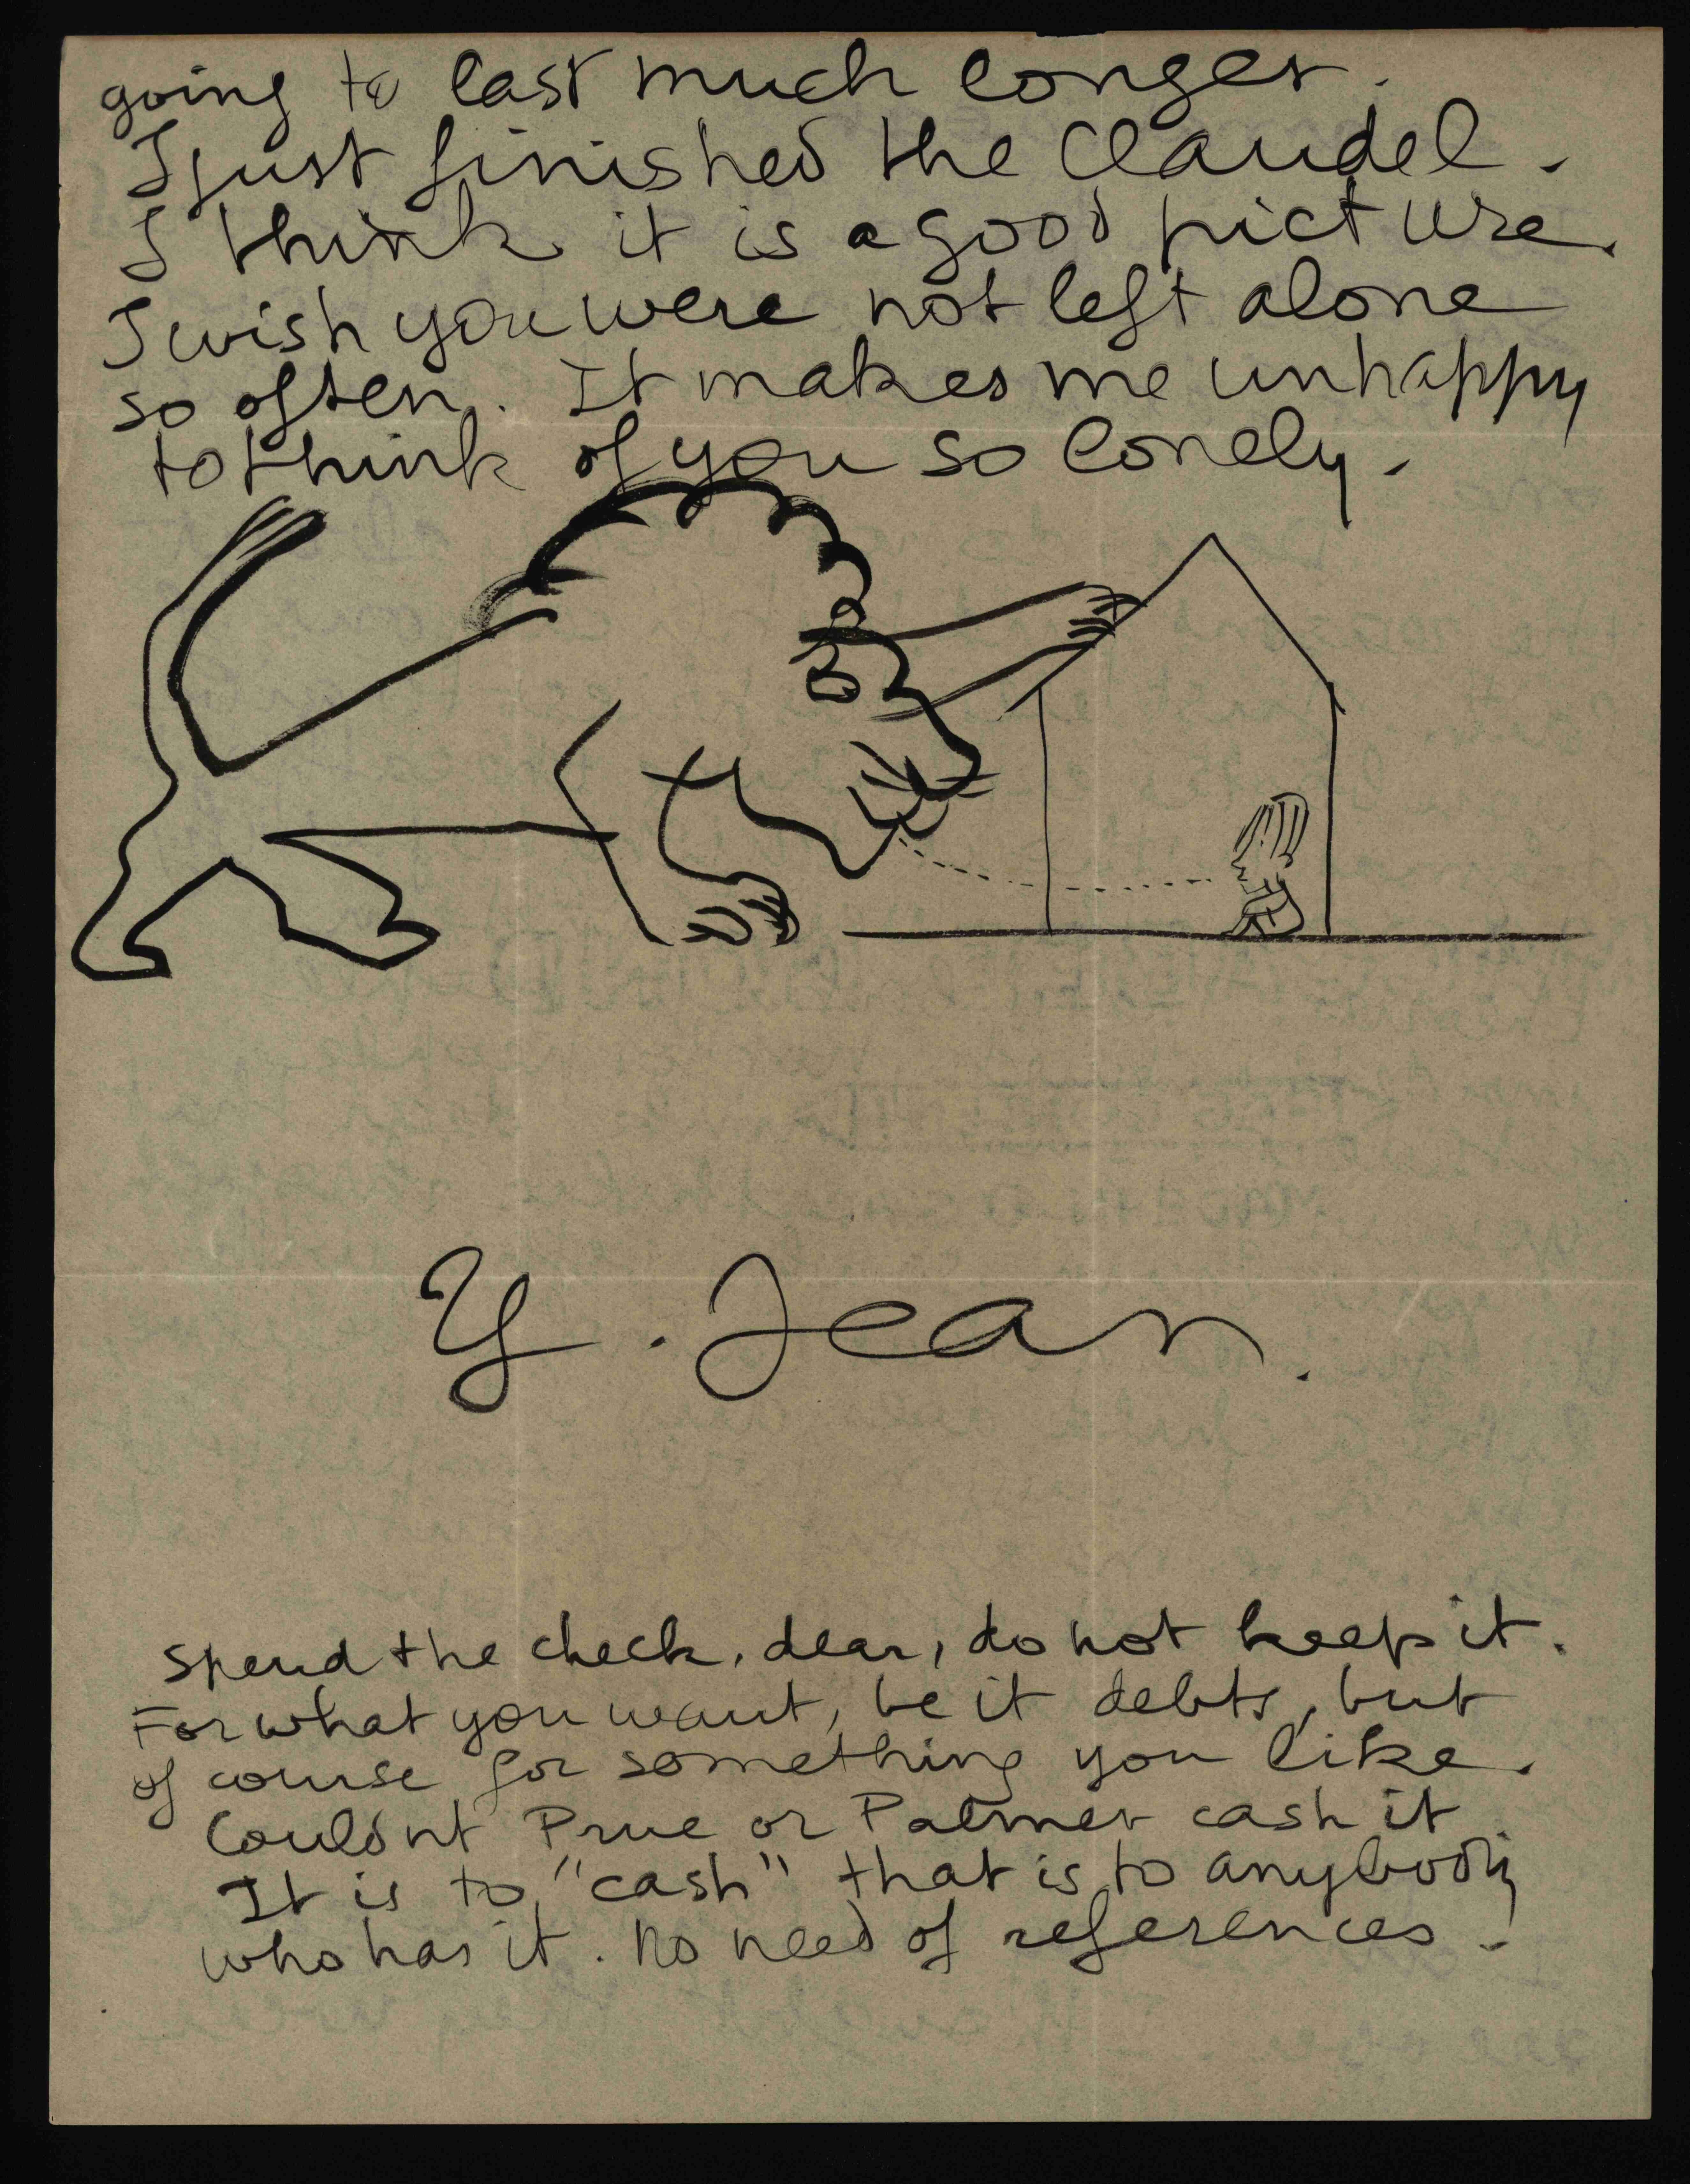 going to last much longer.
I just finished the Claudel.
I think it is a good picture.
I wish you were not left alone
so often. It makes me unhappy
to think of you so lonely.
Y. Jean.
Spend the check, dear, do not keep it.
For what you want, be it debts, but
of course for something you like.
Couldnt Prue or Palmer cash it
It is to "cash" that is to anybody
who has it. No need of references.